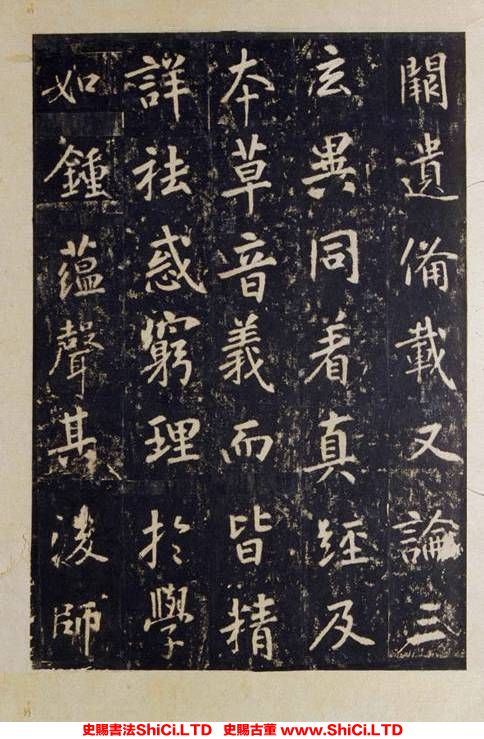 闕遺備載又論三
玄異同着真經及
本草音義而皆精
詳祛惑窮理於學
如鍾蕴聲其後師
史賜書法ShiCi.LTD 史賜古董 www.ShiCi.LTD